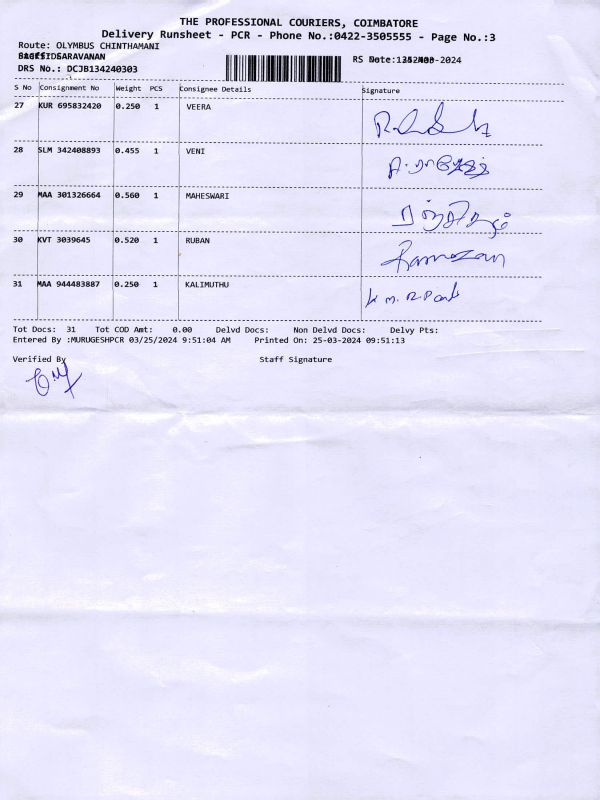 THE PROFESSIONAL COURIERS, COIMBATORE
Delivery Runsheet - PCR - Phone No.:0422-3505555 - Page No.:3
Route: OLYMBUS CHINTHAMANI
SARAVANAN
DRS No.: DCJB134240303
S No Consignment No Weight PCS Consignee Details Signature
27 KUR 695832420 0.250 1 VEERA
28 SLM 342408893 0.455 1 VENI
29 MAA 301326664 0.560 1 MAHESWARI
30 KVT 3039645 0.520 1 RUBAN Ramezan
31 MAA 944483887 0.250 1 KALIMUTHU
Tot Docs: 31 Tot COD Amt: 0.00 Delvd Docs: Non Delvd Docs: Delvy Pts:
Entered By :MURUGESHPCR 03/25/2024 9:51:04 AM Printed On: 25-03-2024 09:51:13
Verified By Staff Signature